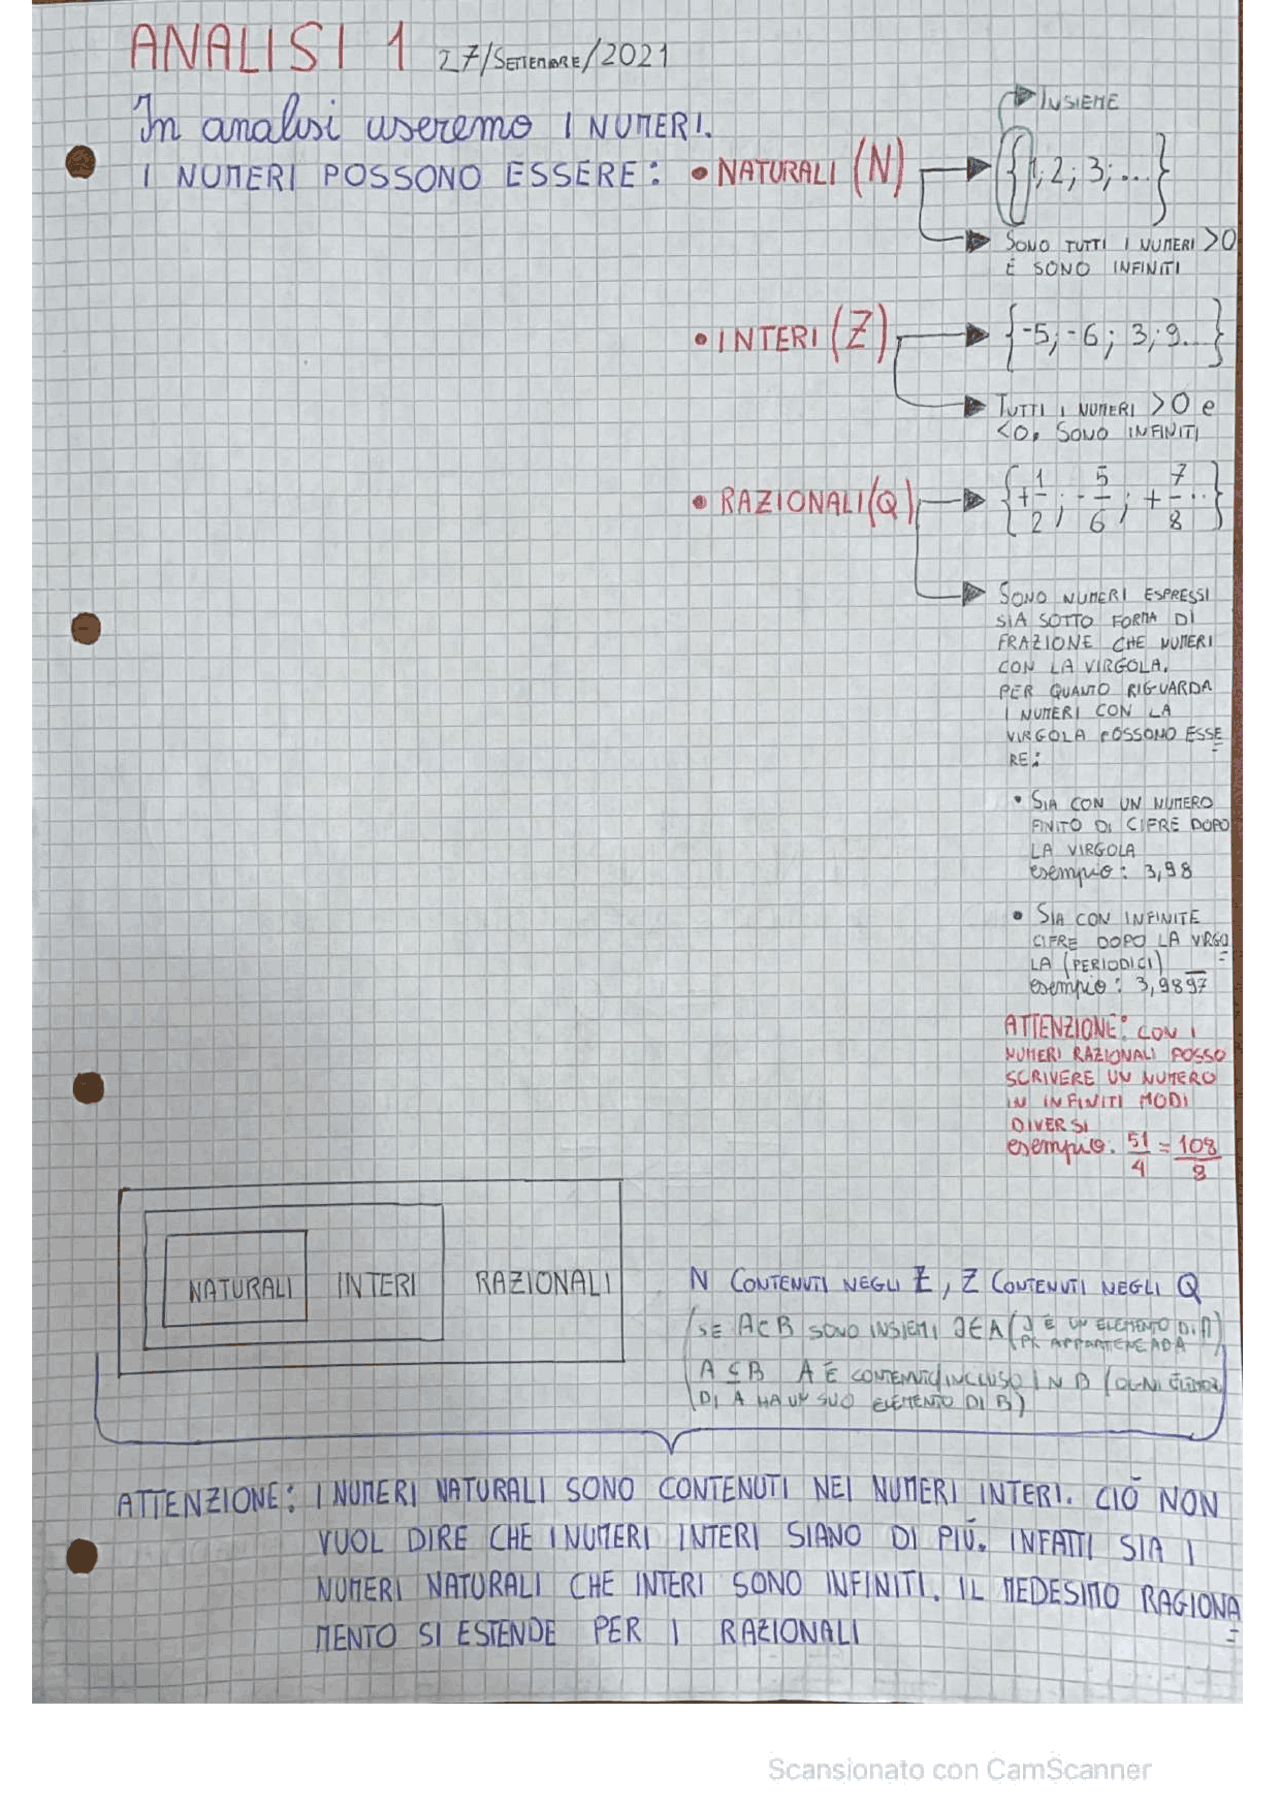 ANALISI 1 27/SETTEMBRE/2021
In analisi useremo I NUMERI.
I NUMERI POSSONO ESSERE: • NATURALI (N)
INSIEME
{1; 2; 3; ...}
SONO TUTTI I NUMERI >0
E SONO INFINITI
• INTERI (Z)
{-5; -6; 3; 9...}
TUTTI I NUMERI >0 e
<0. SONO INFINITI
• RAZIONALI (Q)
{+1/2; -5/6; +7/8 ...}
SONO NUMERI ESPRESSI
SIA SOTTO FORMA DI
FRAZIONE CHE NUMERI
CON LA VIRGOLA.
PER QUANTO RIGUARDA
I NUMERI CON LA
VIRGOLA POSSONO ESSE
RE:
• SIA CON UN NUMERO
FINITO DI CIFRE DOPO
LA VIRGOLA
esempio: 3,98
• SIA CON INFINITE
CIFRE DOPO LA VIRGO
LA (PERIODICI)
esempio: 3,9897̅
ATTENZIONE: CON I
NUMERI RAZIONALI POSSO
SCRIVERE UN NUMERO
IN INFINITI MODI
DIVERSI
esempio. 51/4 = 108/8
NATURALI INTERI RAZIONALI
N CONTENUTI NEGLI Z, Z CONTENUTI NEGLI Q
(SE A e B SONO INSIEMI ∂∈A (∂ È UN ELEMENTO DI A)
APPARTIENE AD A
A ⊆ B A È CONTENUTO/INCLUSO IN B (OGNI
DI A HA UN SUO ELEMENTO DI B)
ATTENZIONE: I NUMERI NATURALI SONO CONTENUTI NEI NUMERI INTERI. CIÒ NON
VUOL DIRE CHE I NUMERI INTERI SIANO DI PIÙ. INFATTI SIA I
NUMERI NATURALI CHE INTERI SONO INFINITI. IL MEDESIMO RAGIONA
MENTO SI ESTENDE PER I RAZIONALI
Scansionato con CamScanner